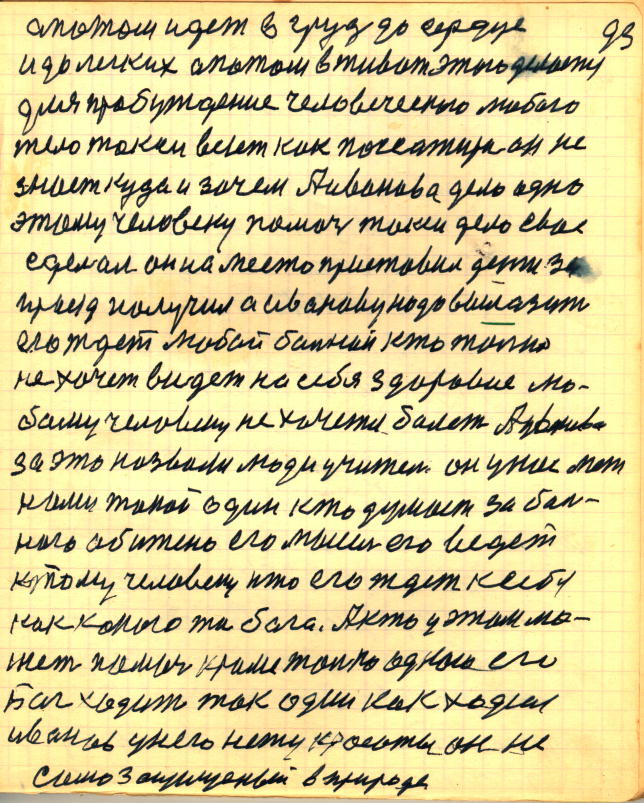 апотом идет в груд до сердце 93
идолегких апотом в тивот этого делаету
для пробуждение человеческого любого
тело такси везет как поссажира он не
знает куда и зачем Аиванова дело одно
этому человеку помоч такси дело свое
сделал он на место приставил денги за
проезд получил а иванову надо вылазит
его ждет любой балной кто толко
не хочет видет на себя здоровие лю-
бому человеку не хочется болет
за это назвали люди учител. он у нас
нами такой один кто думает за бал-
ного обижено его мысли его ведет
ктому человеку кто его ждет ксебу
как какого то бога. Акто у этом мо-
жет помоч кроме толко одного его
Бог ходит так один как ходил
иванов у него нету красоты он не
само защищеный в природе